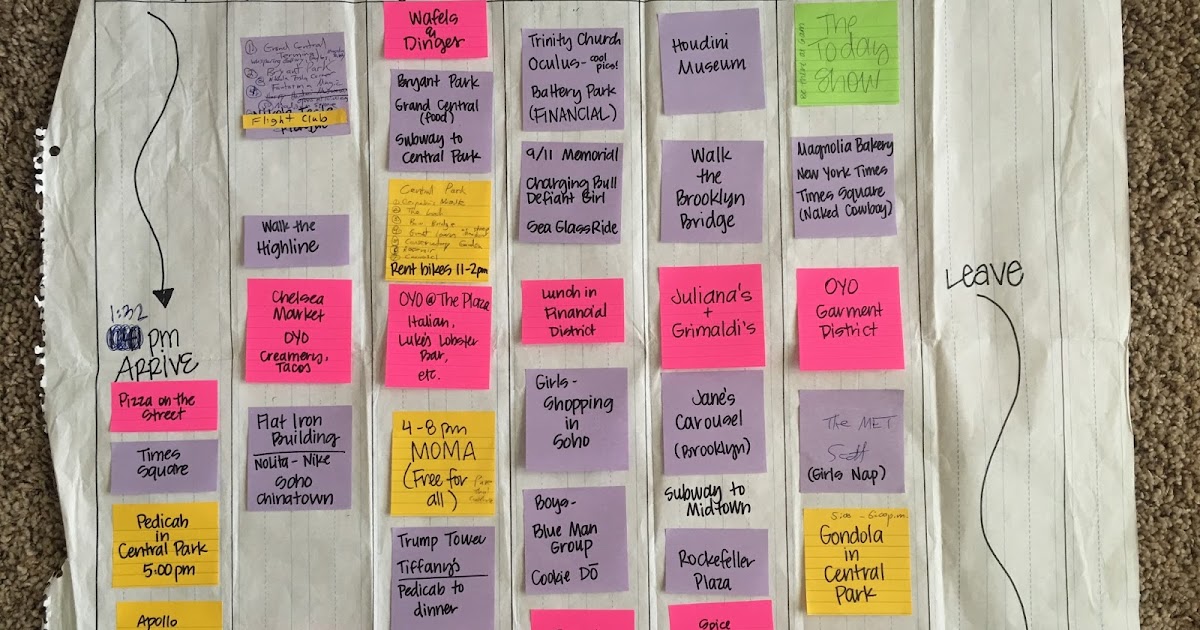 1:32
pm
ARRIVE
Pizza on the
street
Times
Square
Pedicab
in
Central Park
5:00pm
Apollo
① Grand Central
Terminal
Bryant Park
Flight Club
Walk the
Highline
Chelsea
Market
OYO
Creamery,
Tacos
Flat Iron
Building
Nolita - Nike
Soho
Chinatown
Wafels
&
Dinges
Bryant Park
Grand Central
(food)
Subway to
Central Park
Central Park
Rent bikes 11-2pm
OYO @ The Plaza
Italian,
Luke's Lobster
Bar,
etc.
4-8 pm
MOMA
(Free for
all)
Trump Tower
Tiffany's
Pedicab to
dinner
Trinity Church
Oculus - cool
pics!
Battery Park
(FINANCIAL)
9/11 Memorial
Charging Bull
Defiant Girl
Sea Glass Ride
Lunch in
Financial
District
Girls -
Shopping
in
Soho
Boys -
Blue Man
Group
Cookie DŌ
Houdini
Museum
Walk
the
Brooklyn
Bridge
Juliana's
+
Grimaldi's
Jane's
Carousel
(Brooklyn)
Subway to
Midtown
Rockefeller
Plaza
Spice
The
Today
Show
Magnolia Bakery
New York Times
Times Square
(Naked Cowboy)
OYO
Garment
District
The MET
(Girls Nap)
5:00 - 6:00 p.m.
Gondola
in
Central
Park
Leave